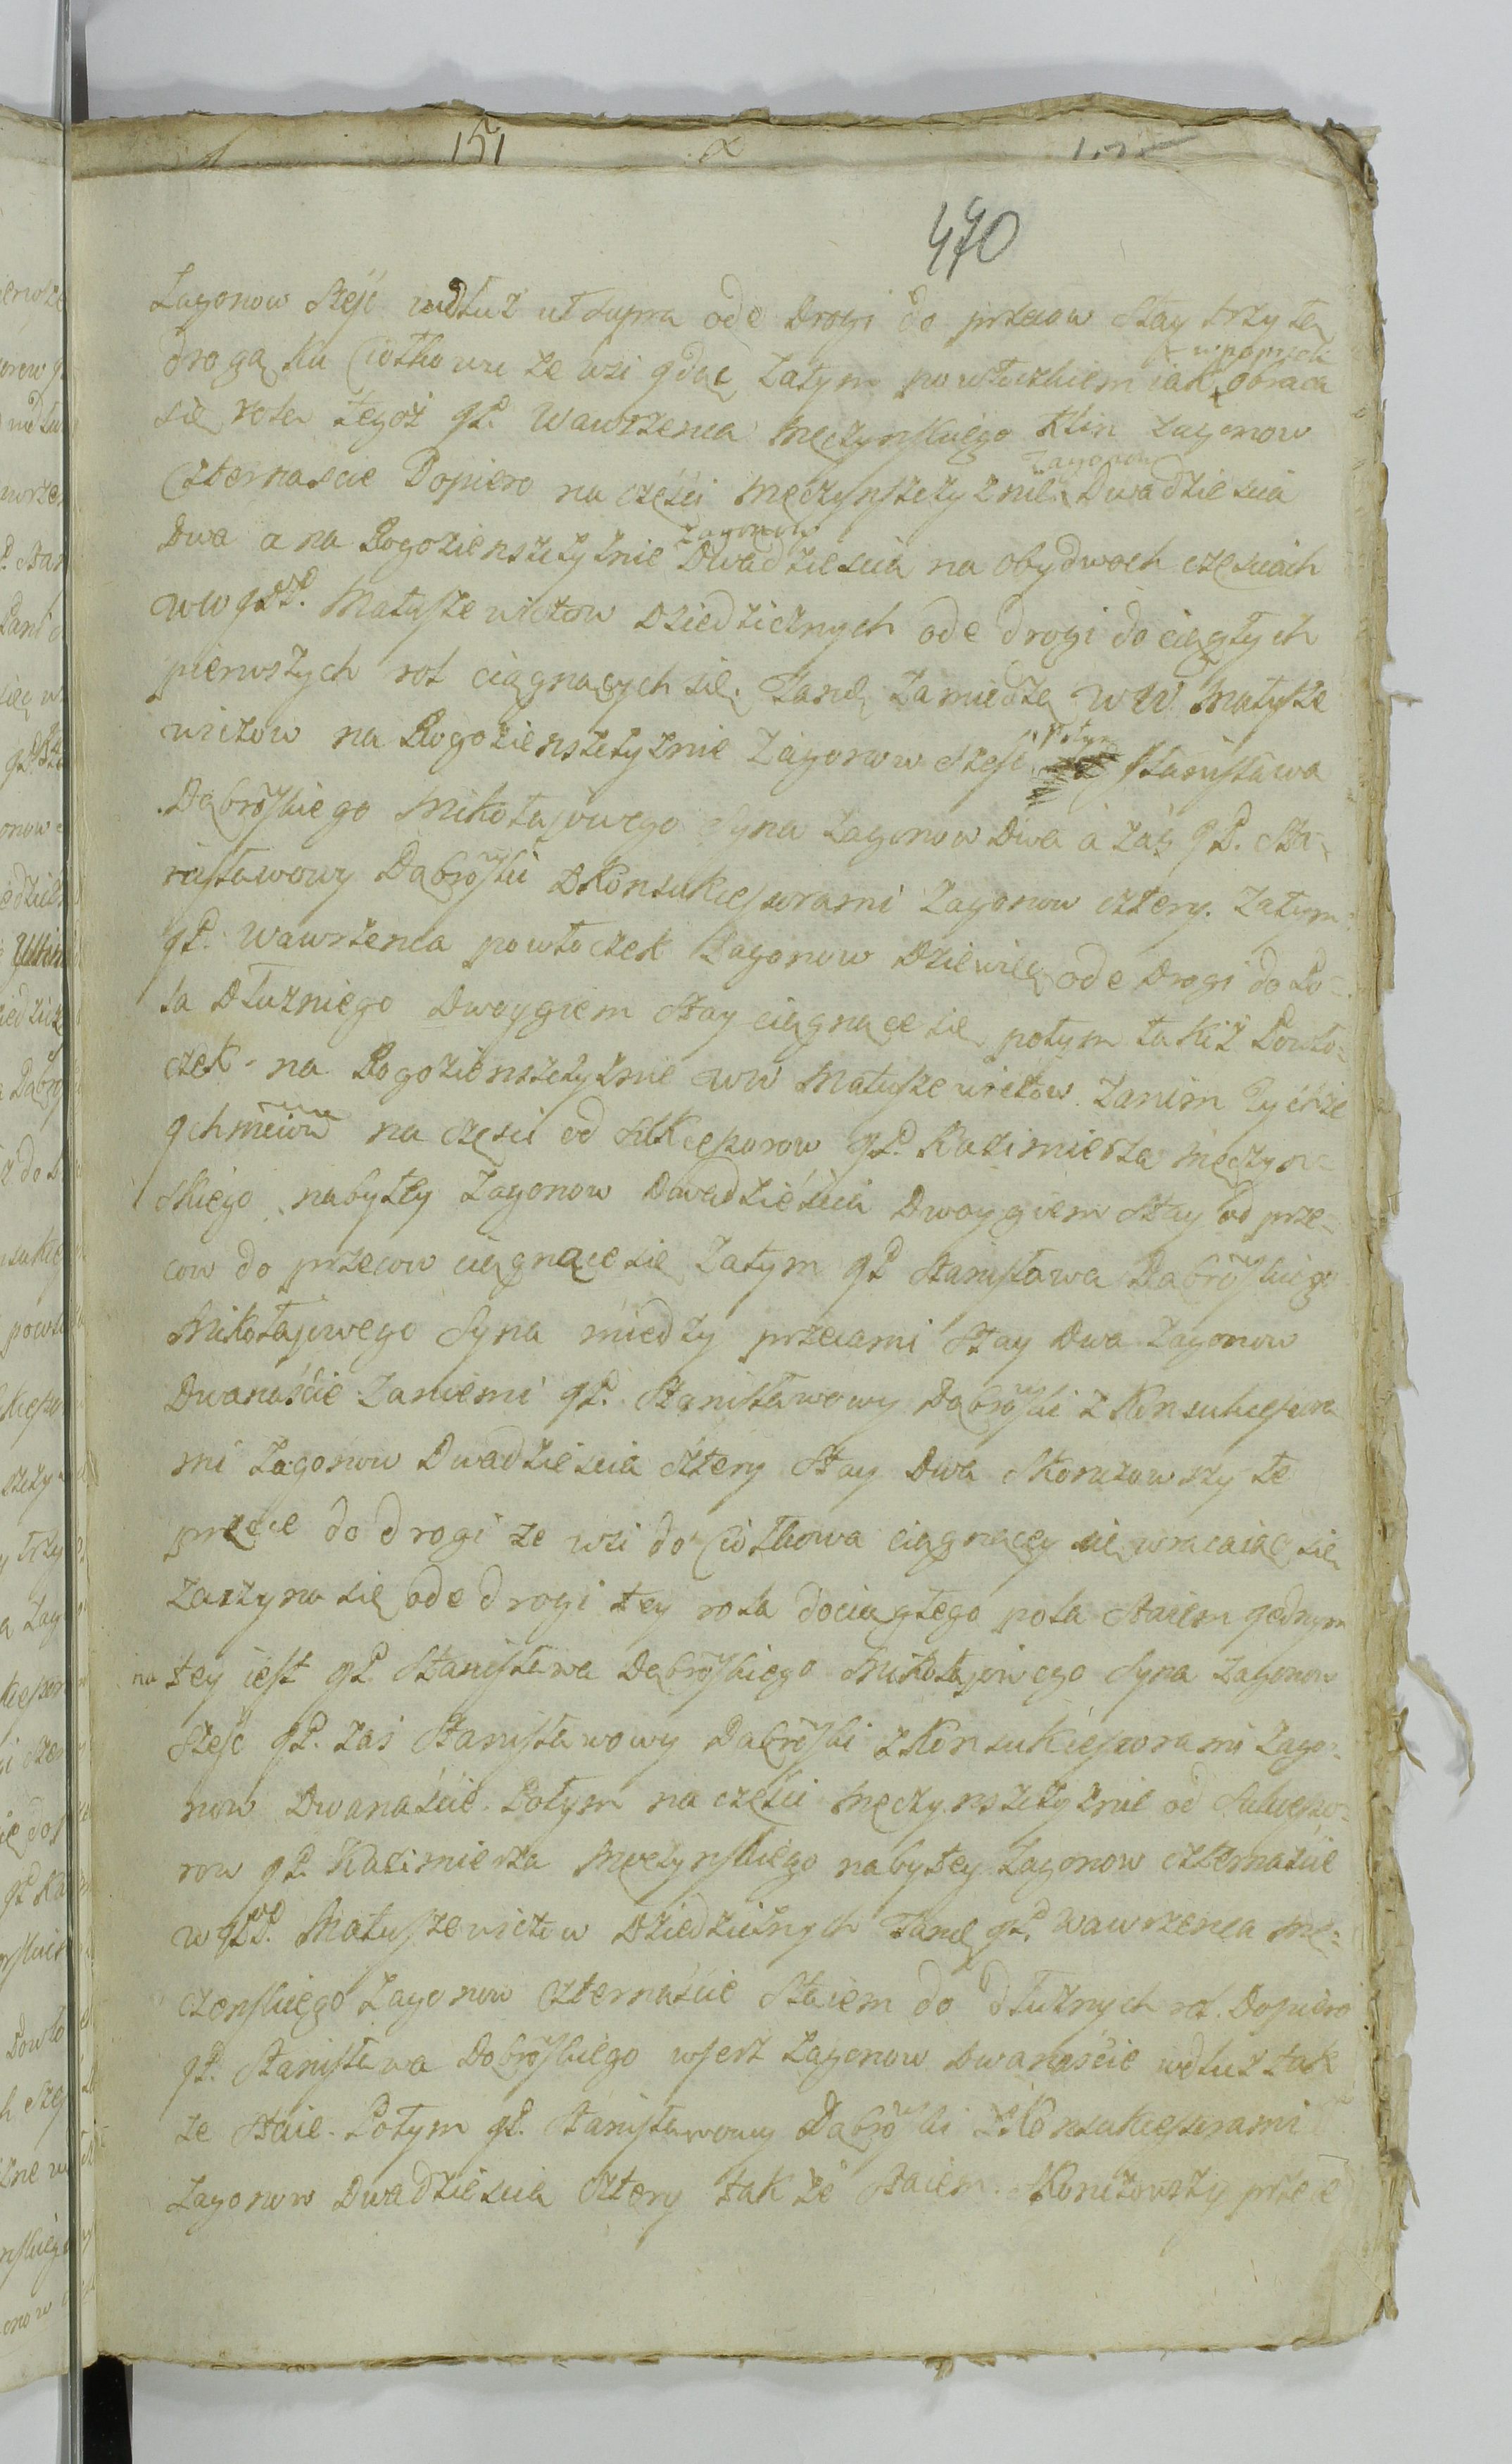 151
470
Zagonow sześć wdłuż ut supra ode Drogi do przecow stay trzy tą
drogą ku Ciotkowu ze wsi gdąc Zatym powłoczkiem iak wpoprzek obraca
się rola tegoż JP. Wawrzenca Męczynskiego Klin zagonow
Czternaście Dopiero na części Męczynszczyznie Zagonow Dwadziescia
Dwa a na Rogozienszczyznie Zagonow Dwadziescia na obydwoch częściach
WWJPP. Matuszewiczow Dziedzicznych ode drogi do ciągłych
pierwszych rol ciągnących się. Jand za miedzą WW. Matusze
wiczow na Rogozienszczyznie Zagonow sześć Potym Stanisława
Dąbroskiego Mikołajowego Syna zagonow Dwa a zaś JP. Sta-
nisławowy Dąbroski z Konsukcessorami Zagonow cztery. Zatym
JP. Wawrzenca powłoczek Zagonow Dziewięć ode Drogi do Po-
la Dłużniego Dwoygiem Stay ciągnące się potym takiż Powło-
czek na Rogozienszczyznie WW Matuszewiczow. Zanim Tychże
Jchmciow na części od Sukcessorow JP. Kazimierza Męczyn-
skiego nabytey Zagonow Dwadzieścia Dwoygiem Stay od prze-
cow do przecow ciągnące się Zatym JP Stanisława Dąbroskiego
Mikołajowego Syna między przecami Stay Dwa Zagonow
Dwanaście Zaniemi JP. Stanisławowy Dąbroski z Konsukcessora
mi Zagonow Dwadziescia cztery Stay Dwa Skonczowszy te
przece do drogi ze wsi do Ciotkowa ciągnącey się wracaiąc się
Zaczyna się ode drogi tey rola do ciągłego pola Staiem jednym
na tey iest JP. Stanisława Dąbroskiego Mikołajowego Syna Zagonow
sześć JP. zaś Stanisławowy Dąbroski z Konsukcessorami Zago-
now Dwanaście. Potym na części Męczynszczyznie od Sukcesso-
row JP. Kazimierza Męczynskiego nabytey Zagonow czternaście
WJPP. Matuszewiczow Dziedzicznych Jand JP. Wawrzenca Mę-
czenskiego Zagonow Czternaście Staiem do dłużnych rol. Dopiero
JP. Stanisława Dąbroskiego wszerz Zagonow Dwanaście wdłuż tak
że Staie. Potym JP. Stanisławowy Dąbroski z Konsukcessorami
Zagonow Dwadziescia cztery także Staiem. Skonczowszy przece